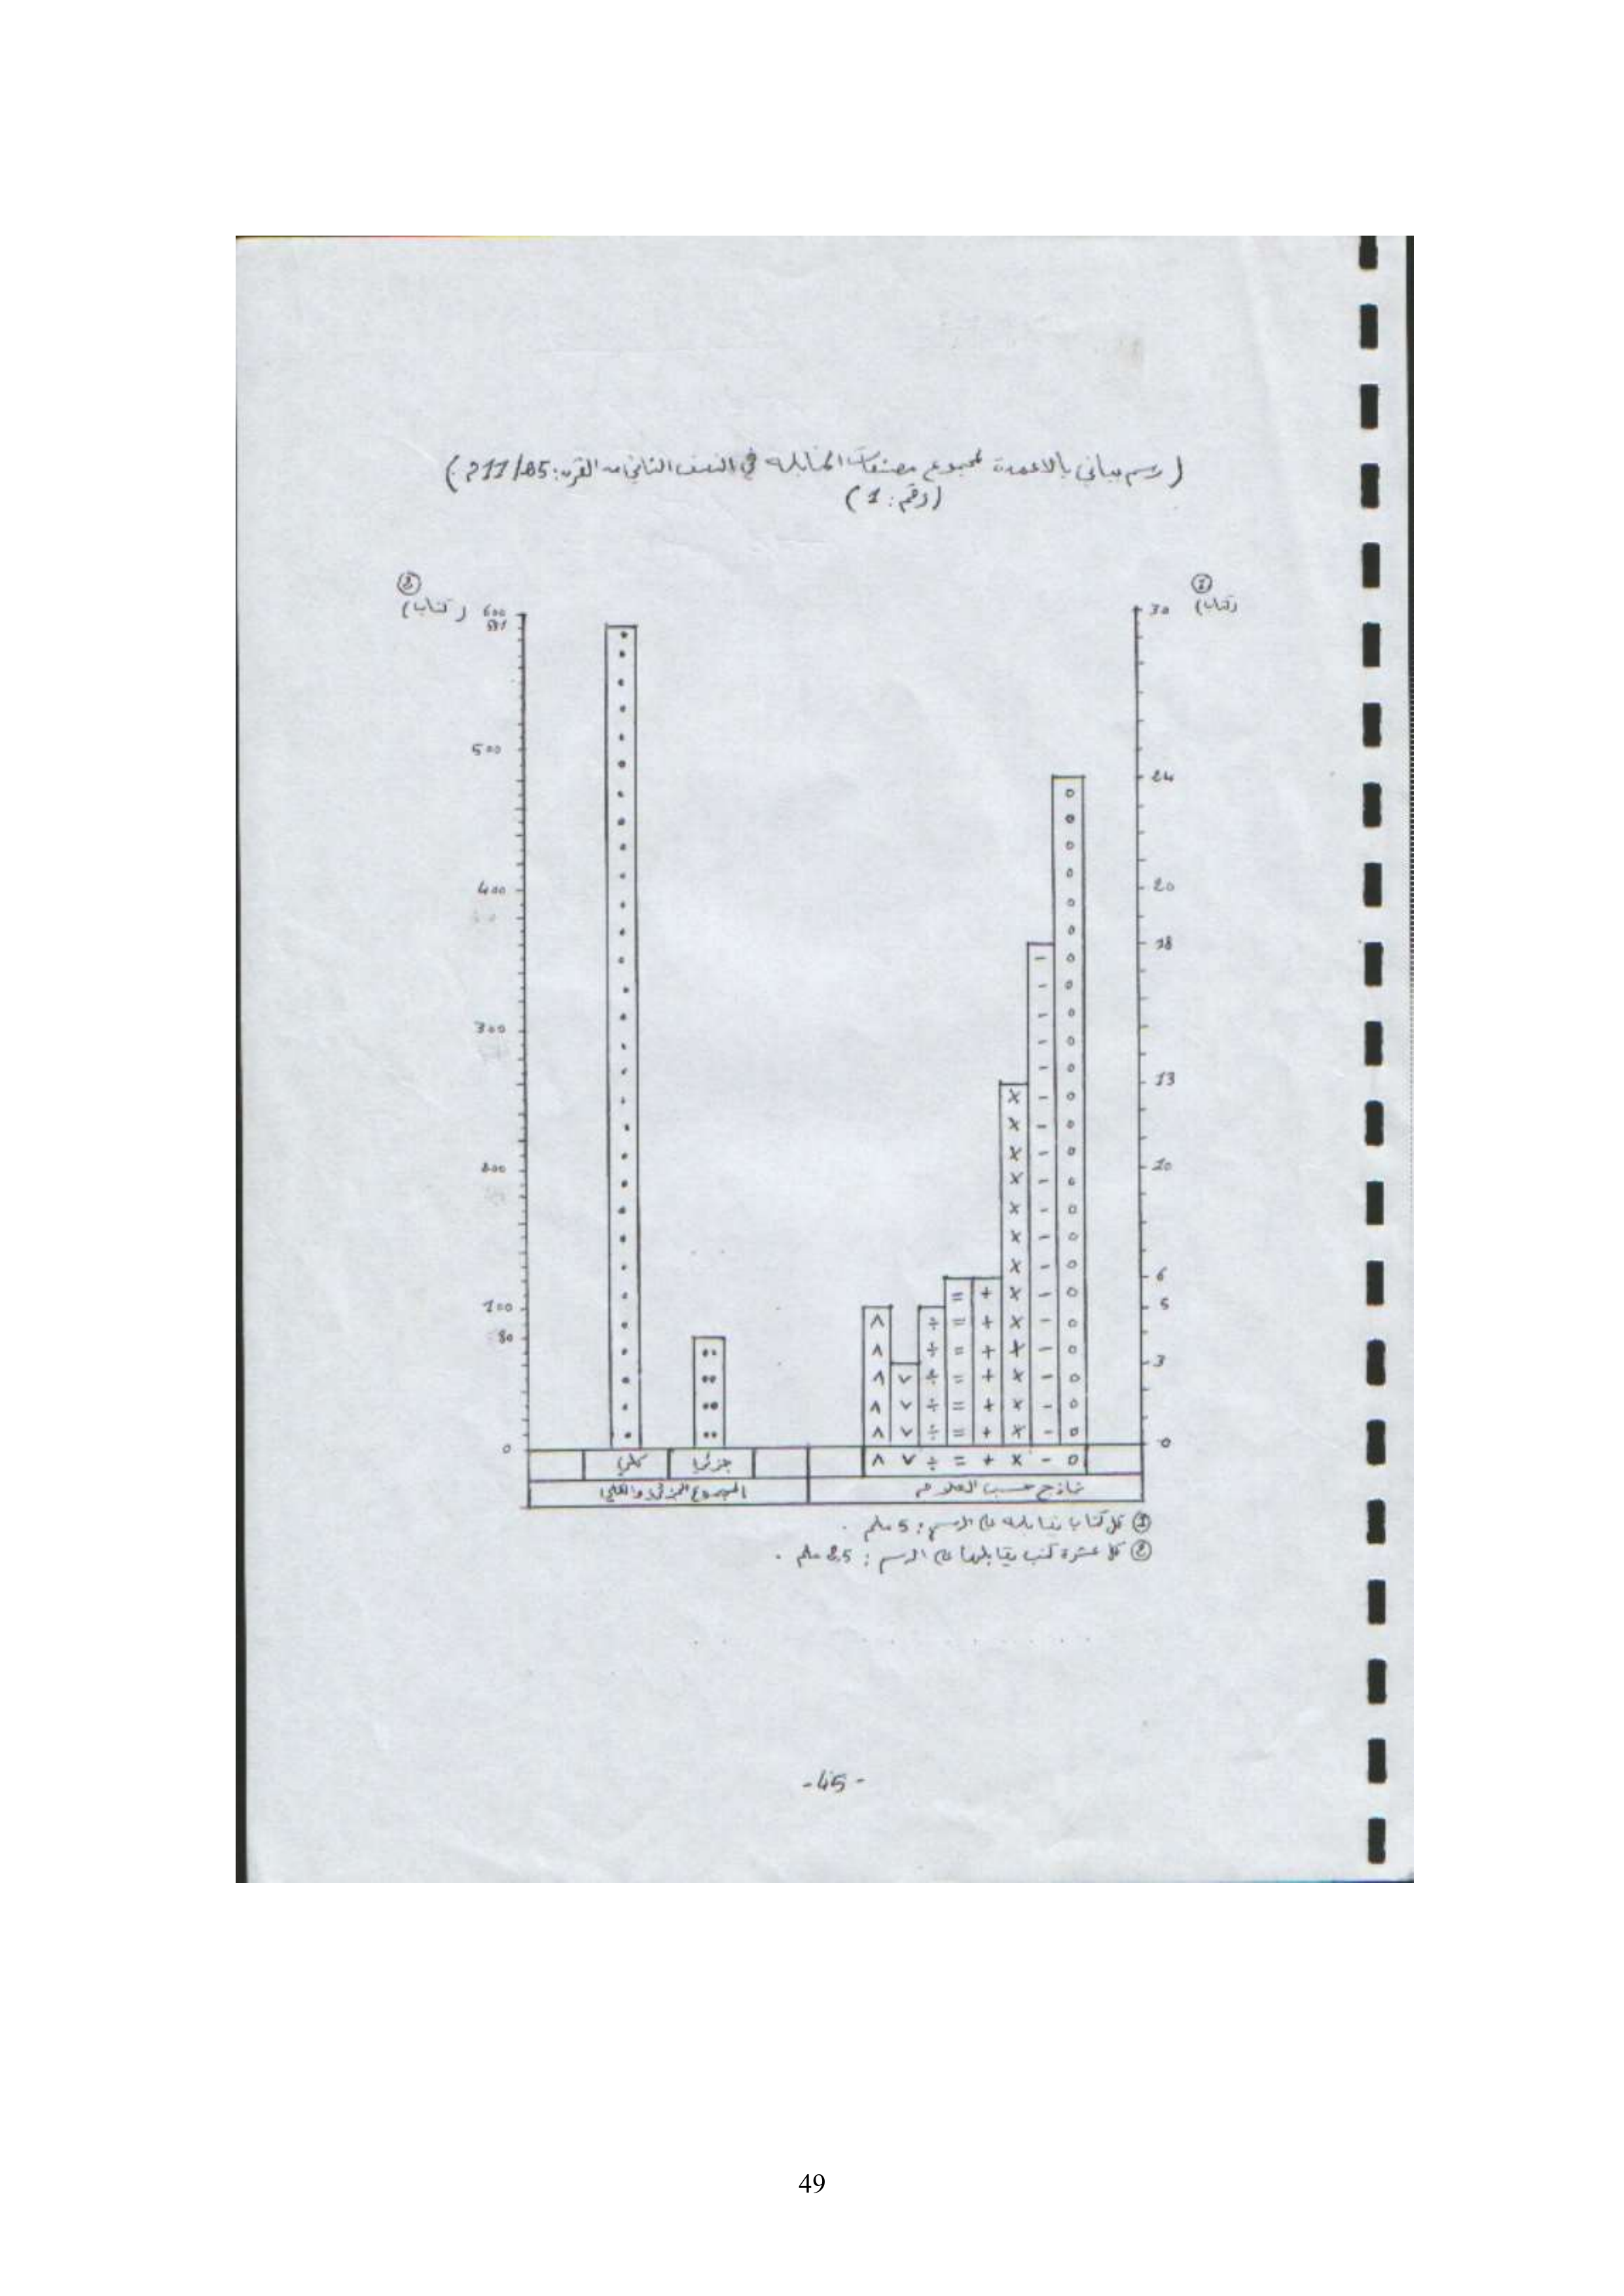 ( رسم بياني بالأعمدة لمجموع مصنفات الحنابلة في النصف الثاني من القرن: 05/11م )
( رقم : 1 )
②
( كتاب )
①
(كتاب)
600
591
500
400
300
200
100
80
0
30
24
20
18
13
10
6
5
3
0
كلي
جزئي
∧ ∨ ÷ = + × - o
المجموع الجزئي والكلي
نماذج حسب العلوم
① كل كتاب يقابله على الرسم : 5 ملم .
② كل عشرة كتب يقابلها على الرسم : 2,5 ملم .
- 45 -
49